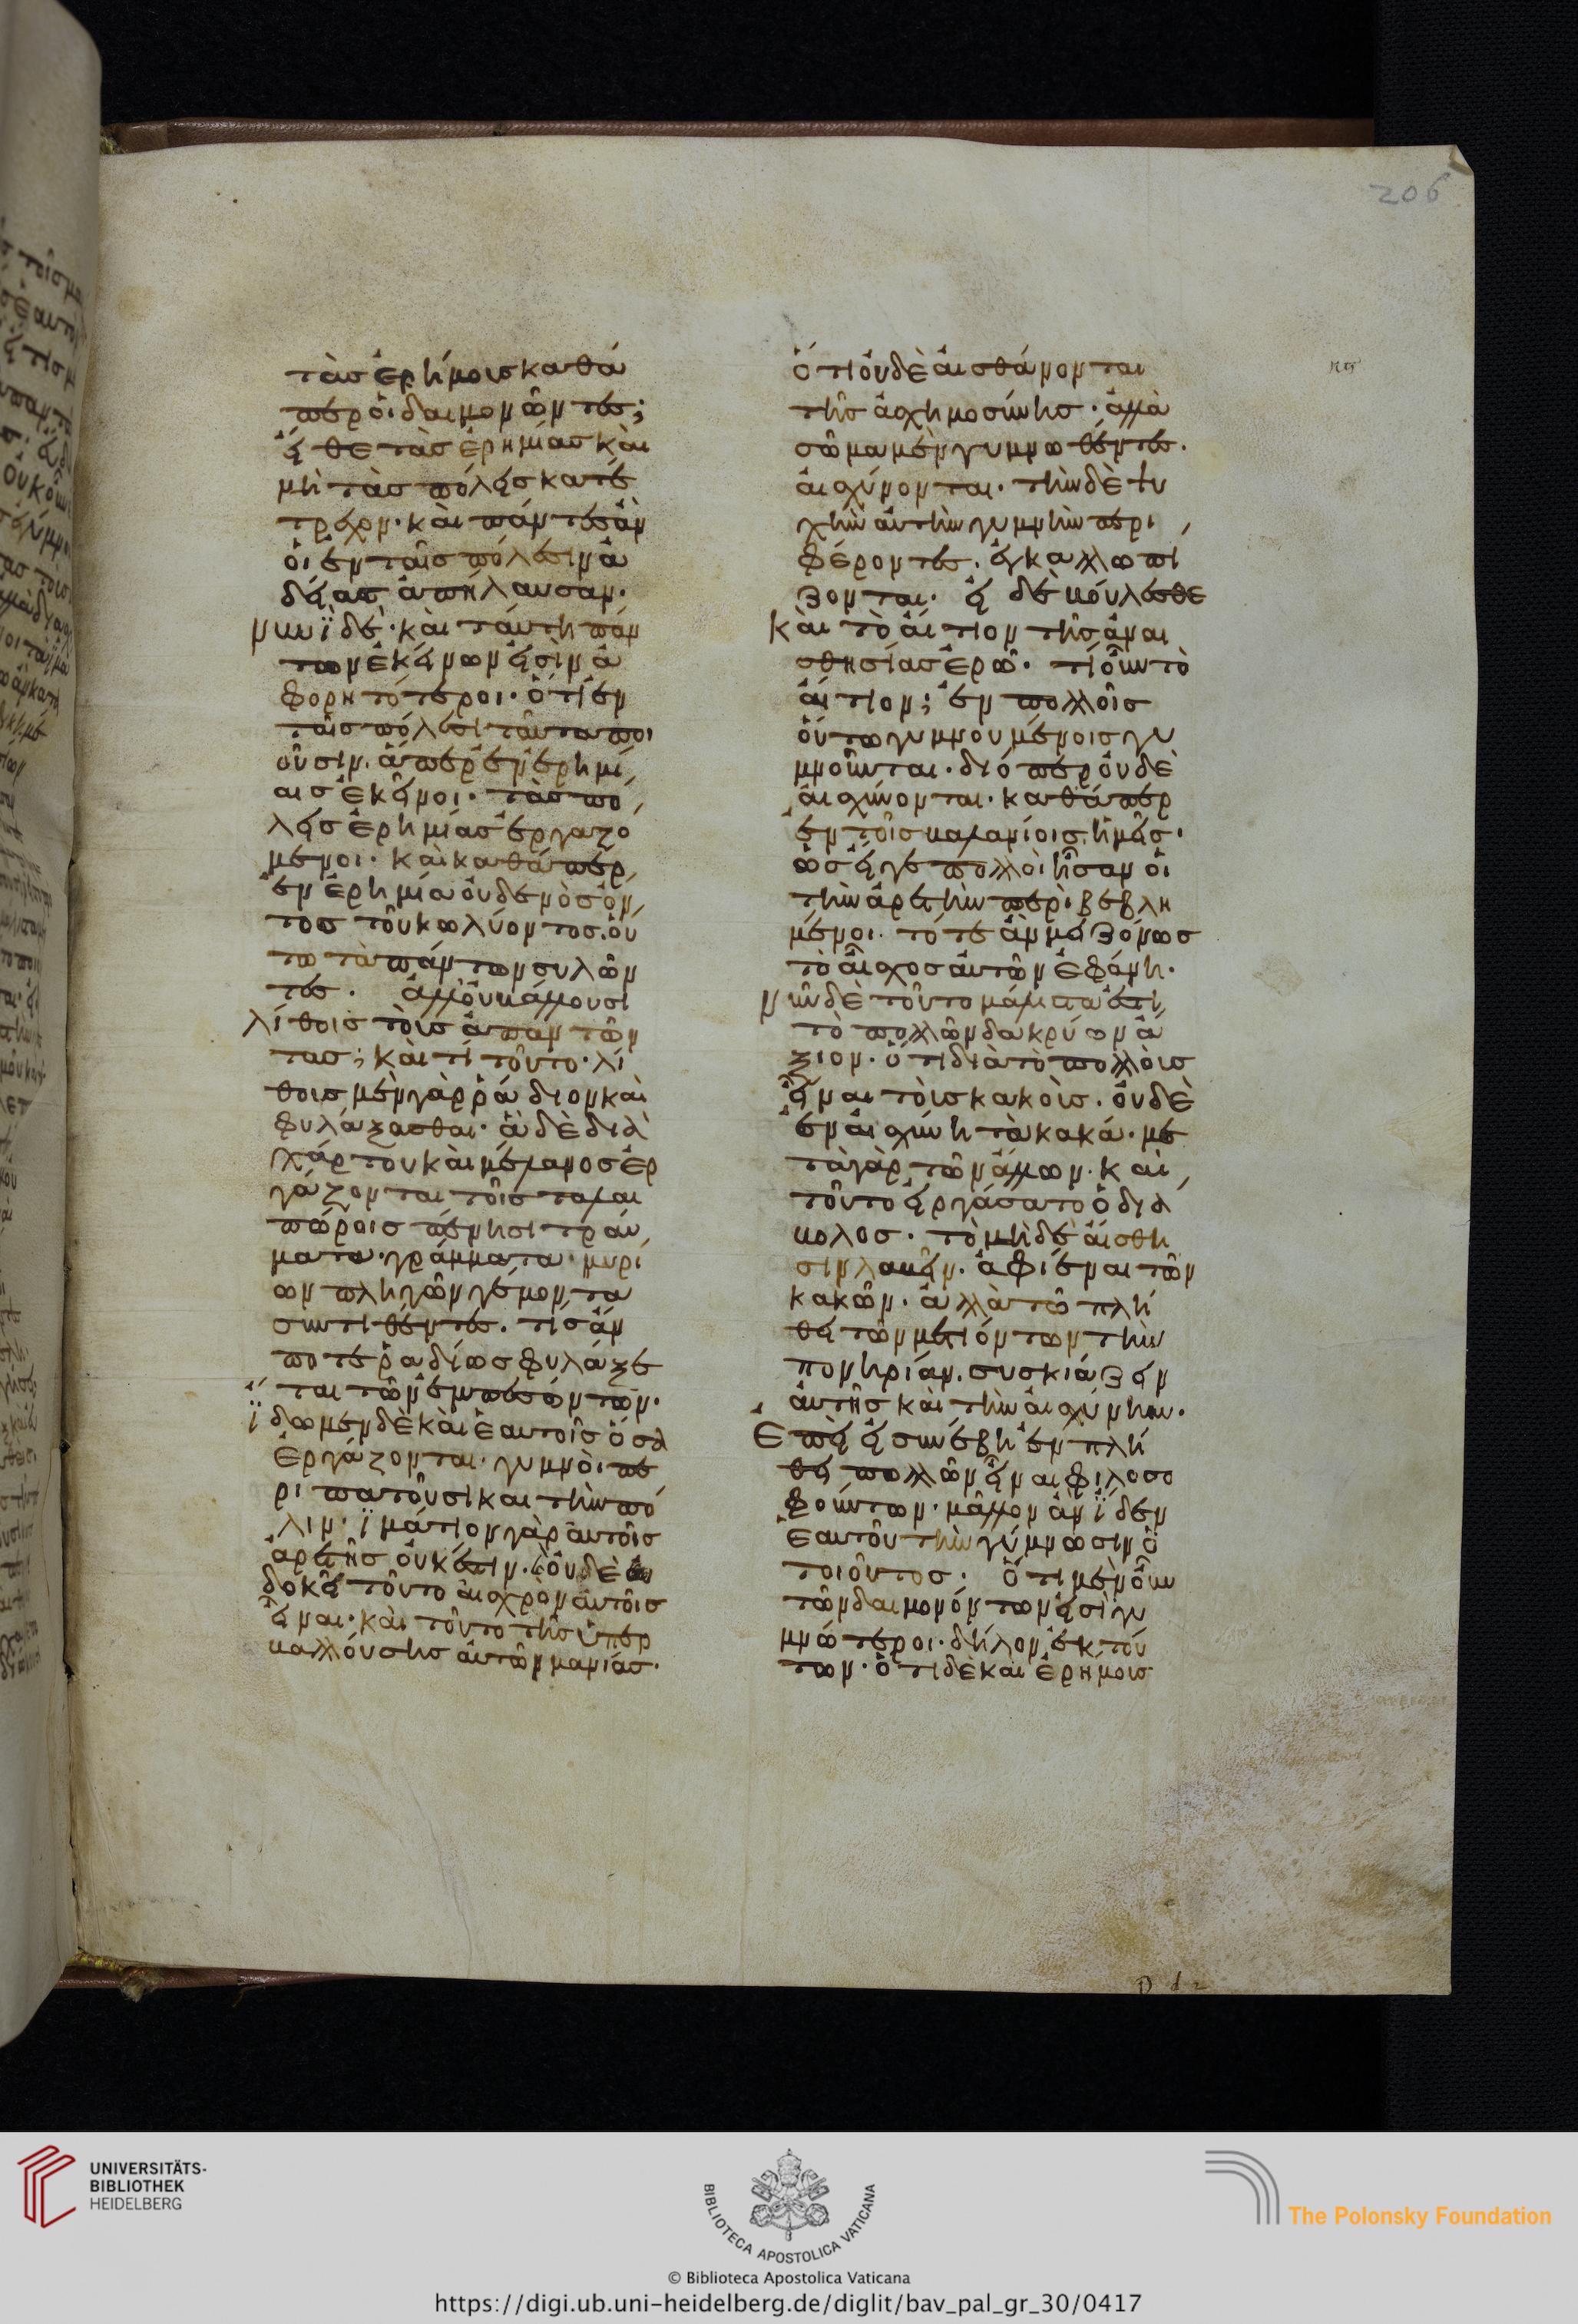 206
τὰσ ἐρήμουσ καθά
περ οἱ δαιμονῶντεσ;
εἴθε τὰσ ἐρημίασ καὶ
μὴ τὰσ πόλεισ κατέ
τρεχον· καὶ πάντεσ ἂν
οἱ ἐν ταῖσ πόλεσιν ἀ
δείασ ἀπήλαυσαν·
νυνὶ δέ· καὶ ταύτη πάν
των ἐκείνων εἰσὶν ἀ
φορητότεροι· ὅτι ἐν
ταῖσ πόλεσι ταῦτα ποι
οῦσιν. ἅπερ ἐν ἐρημί
αισ ἐκεῖνοι· τὰσ πό
λεισ ἐρημίασ ἐργαζό
μενοι· καὶ καθάπερ
ἐν ἐρημία οὐδενὸσ ὄν
τοσ τοῦ κωλύοντοσ. οὕ
τω τὰ πάντων συλῶν
τεσ. ἀλλ' οὐ βάλλουσι
λίθοισ τοὺσ ἀπαντῶν
τασ; καὶ τί τοῦτο· λί
θουσ μὲν γὰρ ῥάδιον καὶ
φυλάξασθαι· ἃ δὲ διὰ
χάρτου καὶ μέλανοσ ἐρ
γάζονται τοῖσ ταλαι
πώροισ πένησι τραύ
ματα· γράμματα· μυρί
ων πληγῶν γέμοντα
συντιθέντεσ. τίσ ἄν
ποτε ῥαδίωσ φυλάξε
ται τῶν ἐμπεσόντων·
ἴδωμεν δὲ καὶ ἑαυτοῖσ ὅσα
ἐργάζονται. γυμνοὶ πε
ριπατοῦσι κατὰ τὴν πό
λιν· ἱμάτιον γὰρ αὐτοῖσ
ἀρετῆσ οὐκ ἔστιν. εἰ οὐδὲ
δοκεῖ τοῦτο αἰσχρὸν αὐτοῖσ
εἶναι· καὶ τοῦτο τῆσ ὑπερ
βαλλούσησ αὐτῶν μανίασ·
ὅτι οὐδὲ αἰσθάνονται
τῆσ ἀσχημοσύνησ. ἀλλὰ
σῶμα μὲν γυμνωθέντεσ.
αἰσχύνονται. τὴν δὲ ψυ
χὴν αὐτὴν γυμνὴν περι
φέροντεσ. ἐγκαλλωπί
ζονται. εἰ δὲ βούλεσθε
καὶ τὸ αἴτιον τῆσ ἀναι
σθησίασ ἐρῶ. τί οὖν τὸ
αἴτιον; ἐν πολλοῖσ
οὕτω γυμνουμένοισ γυ
μνοῦνται. διόπερ οὐδὲ
αἰσχύνονται. καθάπερ
ἐν τοῖσ βαλανείοισ ἡμεῖσ.
ὡσ εἴγε πολλοὶ ἦσαν οἱ
τὴν ἀρετὴν περιβεβλη
μένοι. τότε ἂν μειζόνωσ
τὸ αἶσχοσ αὐτῶν ἐφάνη.
νῦν δὲ τοῦτο μάλιστά ἐστι
τὸ πολλῶν δακρύων ἄ
ξιον. ὅτι διὰ τὸ πολλοὺσ
εἶναι τοὺσ κακοὺσ. οὐδὲ
ἐν αἰσχύνη τὰ κακά. με
τὰ γὰρ τῶν ἄλλων. καὶ
τοῦτο εἰργάσατο ὁ διά
βολοσ. τὸ μηδὲ αἴσθη
σιν λαβεῖν. ἀφιέναι τῶν
κακῶν. ἀλλὰ τῶ πλή
θει τῶν μετιόντων τὴν
πονηρίαν. συσκιάζειν
αὐτῆσ καὶ τὴν αἰσχύνην.
Ἐπεὶ εἰ συνέβη ἐν πλή
θει πολλῶν εἶναι φιλοσο
φούντων. μᾶλλον ἂν ἴδεν
ἑαυτοῦ τὴν γύμνωσιν ὁ
τοιοῦτοσ. ὅτι μὲν οὖν
τῶν δαιμονώντων εἰσὶ γυ
μνότεροι. δῆλον ἐκ τού
των. ὅτι δὲ καὶ ἐρήμουσ
UNIVERSITÄTS-
BIBLIOTHEK
HEIDELBERG
BIBLIOTECA APOSTOLICA VATICANA
© Biblioteca Apostolica Vaticana
The Polonsky Foundation
https://digi.ub.uni-heidelberg.de/diglit/bav_pal_gr_30/0417